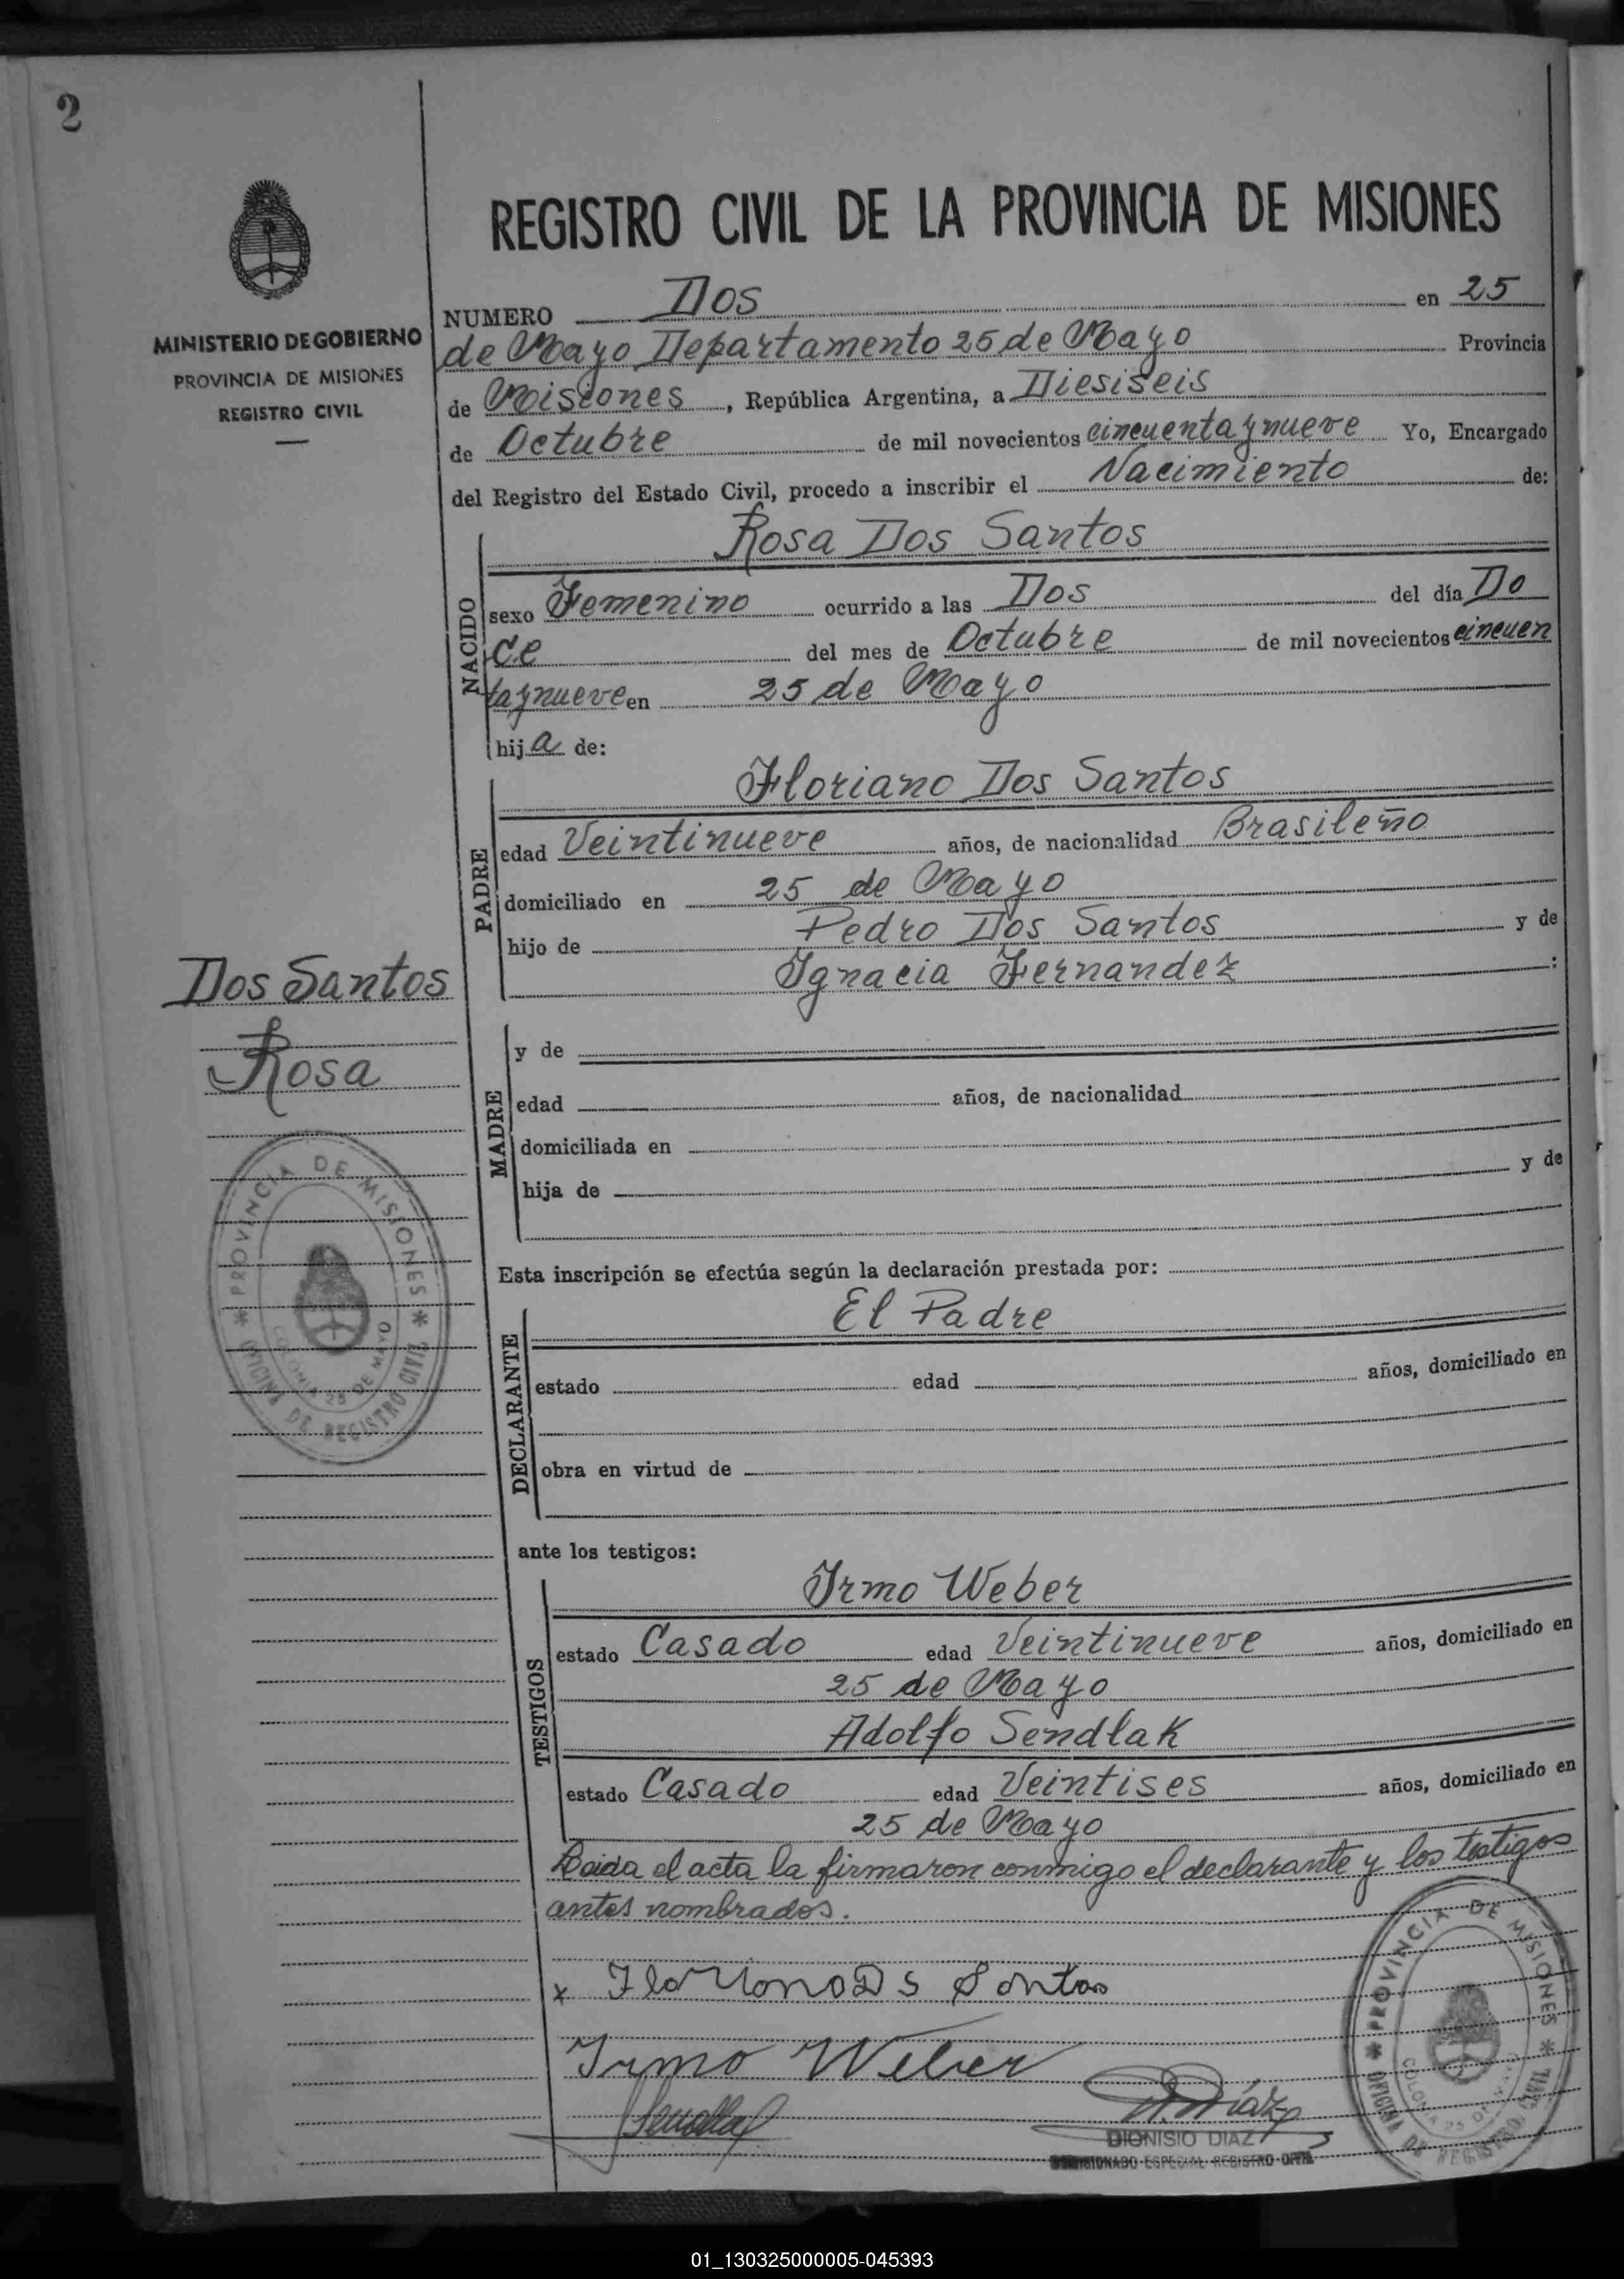 2
MINISTERIO DE GOBIERNO
PROVINCIA DE MISIONES
REGISTRO CIVIL
REGISTRO CIVIL DE LA PROVINCIA DE MISIONES
NUMERO Dos en 25
de Mayo Departamento 25 de Mayo Provincia
de Misiones, República Argentina, a Diesiseis
de Octubre de mil novecientos cincuenta y nueve Yo, Encargado
del Registro del Estado Civil, procedo a inscribir el Nacimiento de:
NACIDO
Rosa Dos Santos
sexo Femenino ocurrido a las Dos del día Do
ce del mes de Octubre de mil novecientos cincuen
ta y nueve en 25 de Mayo
hija de:
PADRE
Floriano Dos Santos
edad Veintinueve años, de nacionalidad Brasileño
domiciliado en 25 de Mayo
hijo de Pedro Dos Santos y de
Ignacia Fernandez :
Dos Santos
Rosa
MADRE
y de
edad años, de nacionalidad
domiciliada en
hija de y de
PROVINCIA DE MISIONES
OFICINA DE REGISTRO CIVIL
COLONIA 25 DE MAYO
Esta inscripción se efectúa según la declaración prestada por:
DECLARANTE
El Padre
estado edad años, domiciliado en
obra en virtud de
ante los testigos:
TESTIGOS
Irmo Weber
estado Casado edad Veintinueve años, domiciliado en
25 de Mayo
Adolfo Sendlak
estado Casado edad Veintises años, domiciliado en
25 de Mayo
Leida el acta la firmaron conmigo el declarante y los testigos
antes nombrados.
x Floriono Ds Sontos
Irmo Weber
D. Díaz
DIONISIO DIAZ
ESPECIAL REGISTRO CIVIL
PROVINCIA DE MISIONES
OFICINA DE REGISTRO CIVIL
COLONIA 25 DE MAYO
01_130325000005-045393